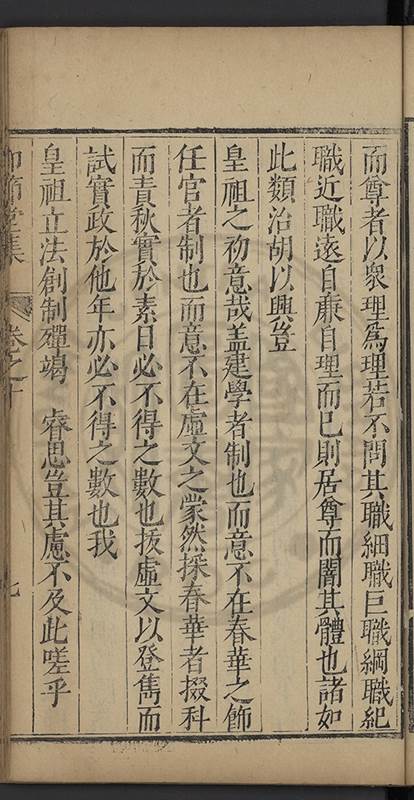 而尊者以衆理爲理若不問其職細職巨職綱職紀
職近職遠自廉自理而已則居尊而闇其體也諸如
此類治胡以興豈
皇祖之初意哉盖建學者制也而意不在春華之飾
任官者制也而意不在虛文之蒙然採春華者掇科
而責秋實於素日必不得之數也㧞虛文以登雋而
試實政於他年亦必不得之數也我
皇祖立法創制殫竭 睿思豈其慮不及此嗟乎
仰節堂集 卷之十 七